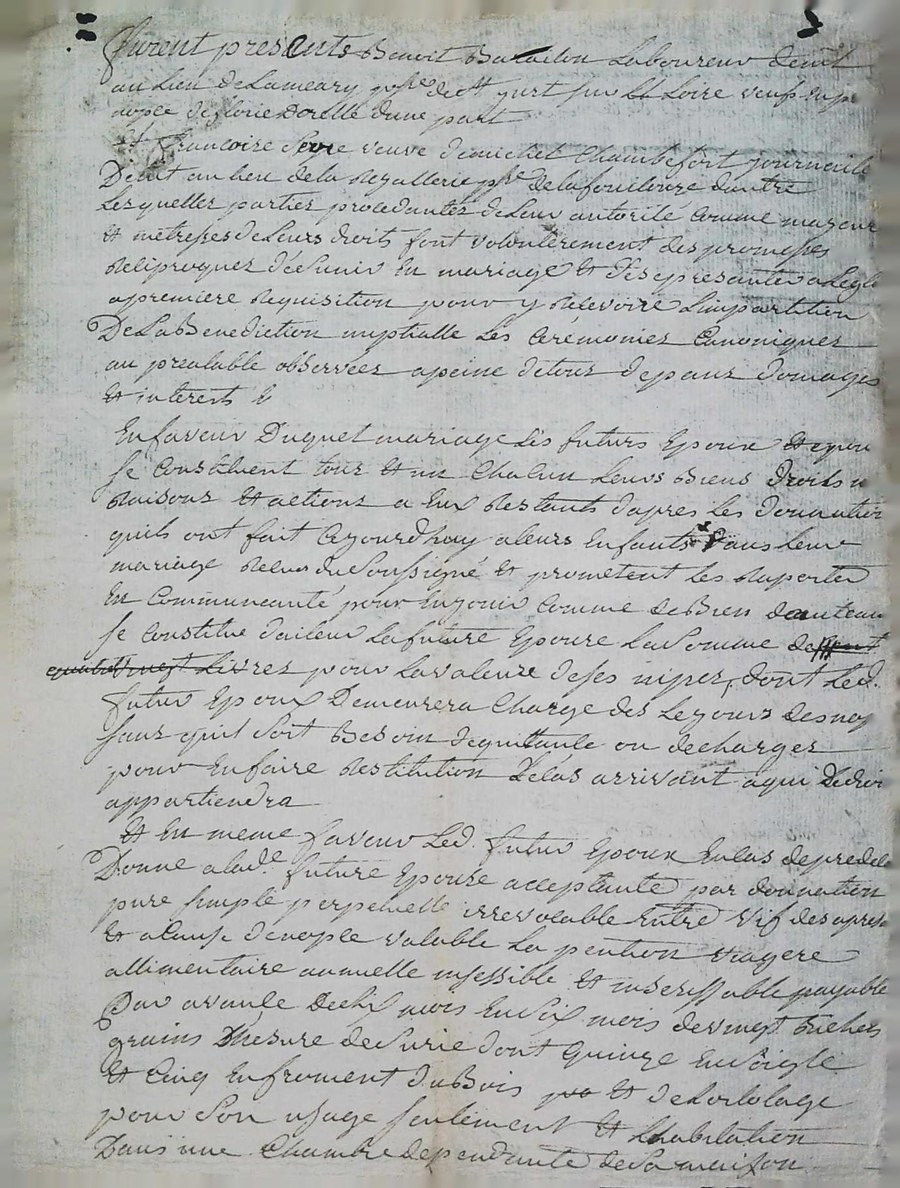 furent presants Benoit Laboureur demt
au lieu de Lameary psse dudt st just sur Loire veuf en p
nopce de Marie dorelle d'une part
Et francoise veuve de michel chambefort journaile
Demt au lieu de la psse de lafouilouze dautre
Lesquelles parties procedantes de Leur autorité comme mageur
Et metresses de Leurs droits font volonterement des promesses
Resiproques de sunir En mariage Et se presanter a Legli
apremiere Requisition pour y Recevoire Limpartition
De La Benediction nuptialle Les Ceremonies Canoniques
au prealable observées apeine de tous depans domages
Et interests
En faveur Duquel mariage Les futurs Epoux
se Constituent tous Et un Chacun Leurs Biens droits
Raisons Et actions a Eux Restants dapres Les donnation
quils ont fait Cejourdhuy a leurs Enfants dans leur
mariage Recus du Soussigné Et prometent Les Raporter
En Communauté pour En jouir Comme de Bien
se Constitue dailleur La future Epouse La Somme de
Livres pour La valeure de ses nipes, dont Led.
futur Epoux Demeurera Chargé des Le jour des nop
sans quil soit Besoin de quittance ou decharges
pour En faire Restitution Le Cas arrivant a qui De droi
appartiendra
Et En meme faveur Led. futur Epoux En Cas de predece
Donne a lade. future Epouse acceptante par donnation
pure simple perpetuelle irrevocable Entre vif des apresa
Et a Cause de nople valable La pention viagere
allimentaire annuelle inssessible Et insesissable payable
Par avance De Six mois En Six mois de vingt Bichets
grains Mesure de Surie dont Quinze En Seigle
Et Cinq En froment du Bois Et de Lortolage
pour Son usage seulement Et Lhabitation
Dans une Chambre dependante de Sa maison